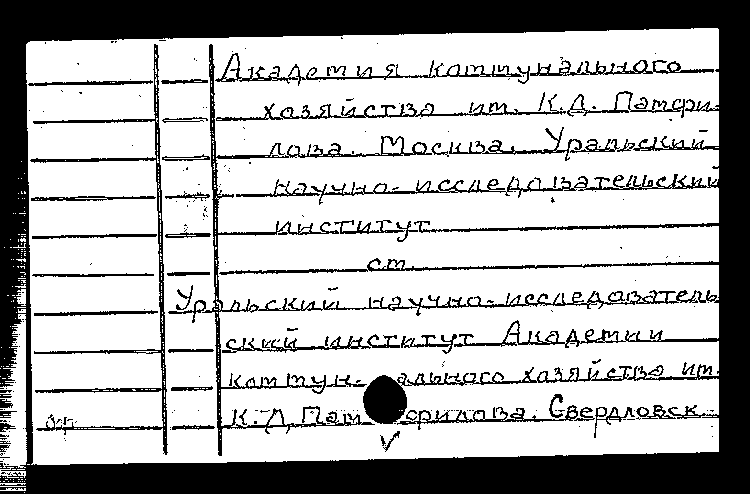 Академия коммунального
хозяйства им. К.Д. Памфи-
лова. Москва. Уральский
научно-исследовательский
институт
см.
Уральский научно-исследователь
ский институт Академии
коммун-ального хозяйства им.
К.Д. Памфилова. Свердловск